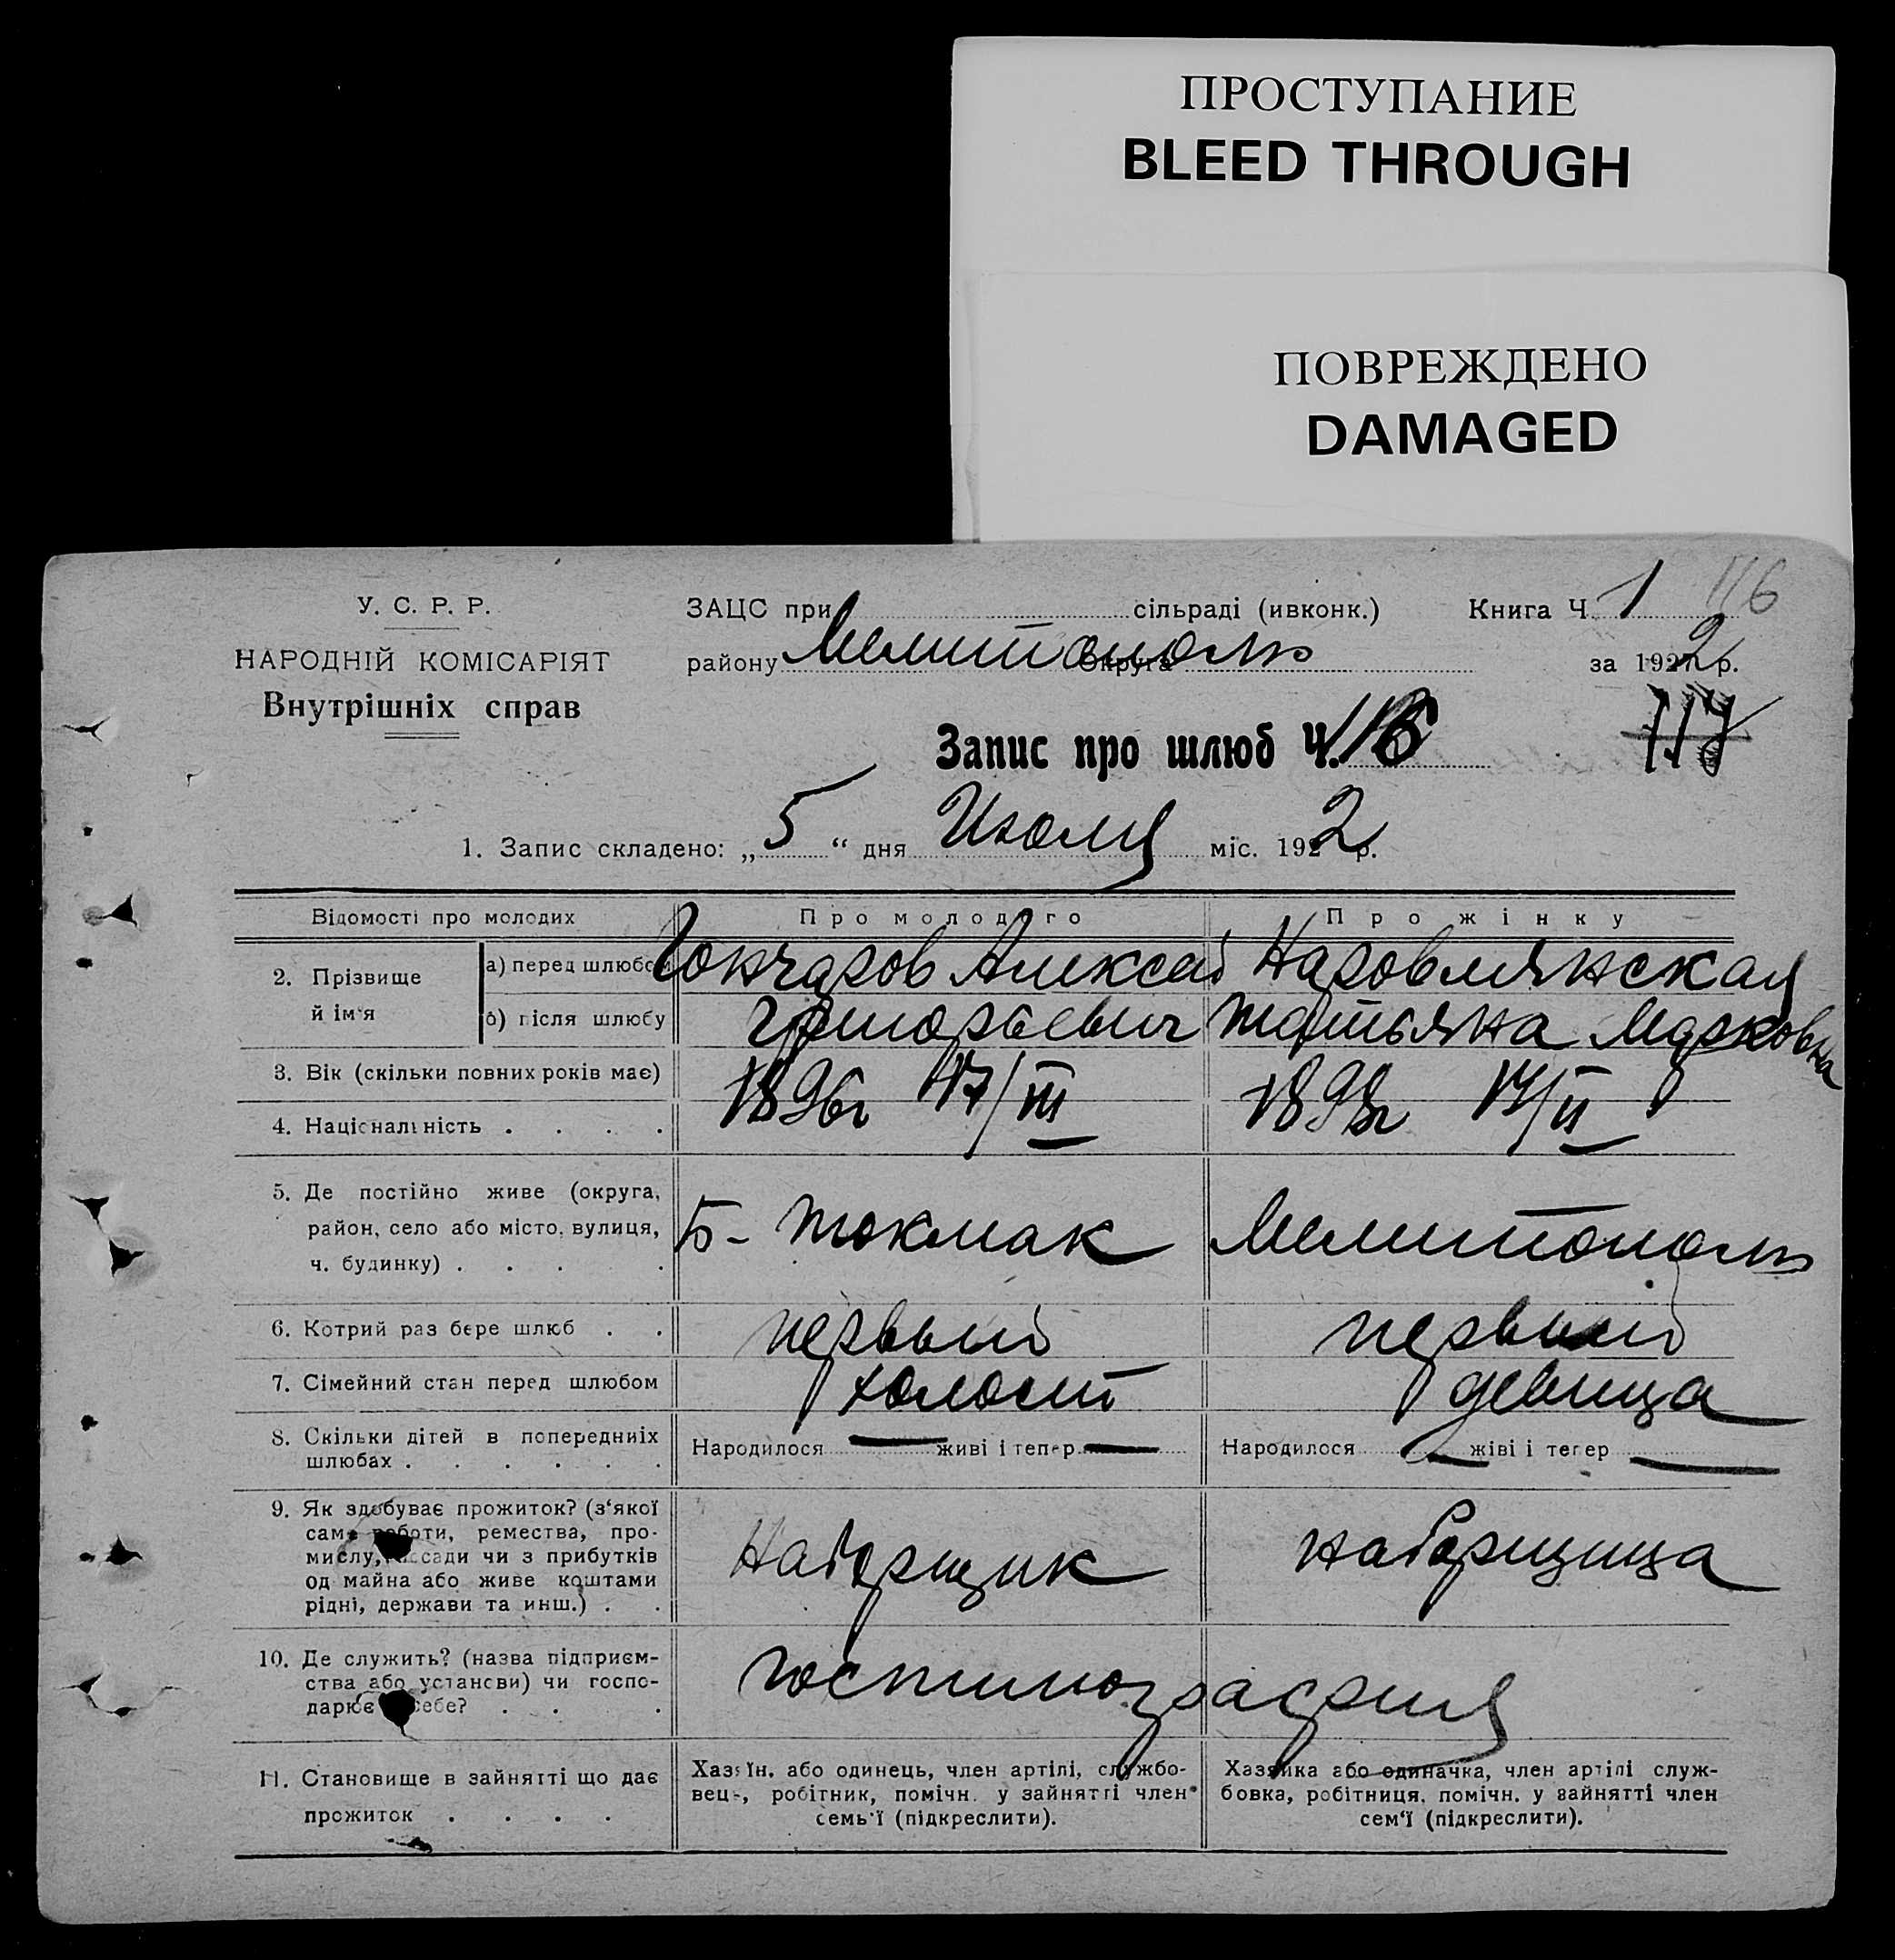 ПРОСТУПАНИЕ
BLEED THROUGH
ПОВРЕЖДЕНО
DAMAGED
У. С. Р. Р.
НАРОДНІЙ КОМІСАРІЯТ
Внутрішніх справ
ЗАЦС при сільраді (ивконк.) Книга Ч. 1 116
району Мелитополь Округа за 1922 р.
Запис про шлюб Ч. 116 117
1. Запис складено: „5“ дня Июля міс. 1922 р.
Відомості про молодих Про молодого Про жінку
2. Прізвище й ім'я
а) перед шлюбом Гончаров Алексей Наровлянская
б) після шлюбу Григорьевич Татьяна Марковна
3. Вік (скільки повних років має) 1896г 17/III 1898г
4. Національність . . . .
5. Де постійно живе (округа,
район, село або місто, вулиця, Б-Токмак Мелитополь
ч. будинку) . . . .
6. Котрий раз бере шлюб . . первый первый
7. Сімейний стан перед шлюбом холост девица
8. Скільки дітей в попередниіх Народилося — живі і тепер — Народилося — жіві і тепер —
шлюбах . . . . . .
9. Як здобуває прожиток? (з'якої
саме роботи, ремества, про-
мислу, посади чи з прибутків Наборщик наборщица
од майна або живе коштами
рідні, держави та инш.) . .
10. Де служить? (назва підприєм-
ства або установи) чи госпо- Гостипография
дарює себе? . . .
11. Становище в зайнятті що дає
прожиток . . . .
Хазяїн, або одинець, член артілі, службо-
вець, робітник, помічн. у зайнятті член
семь'ї (підкреслити).
Хазяйка або одиначка, член артілі служ-
бовка, робітниця, помічн. у зайнятті член
сем'ї (підкреслити).